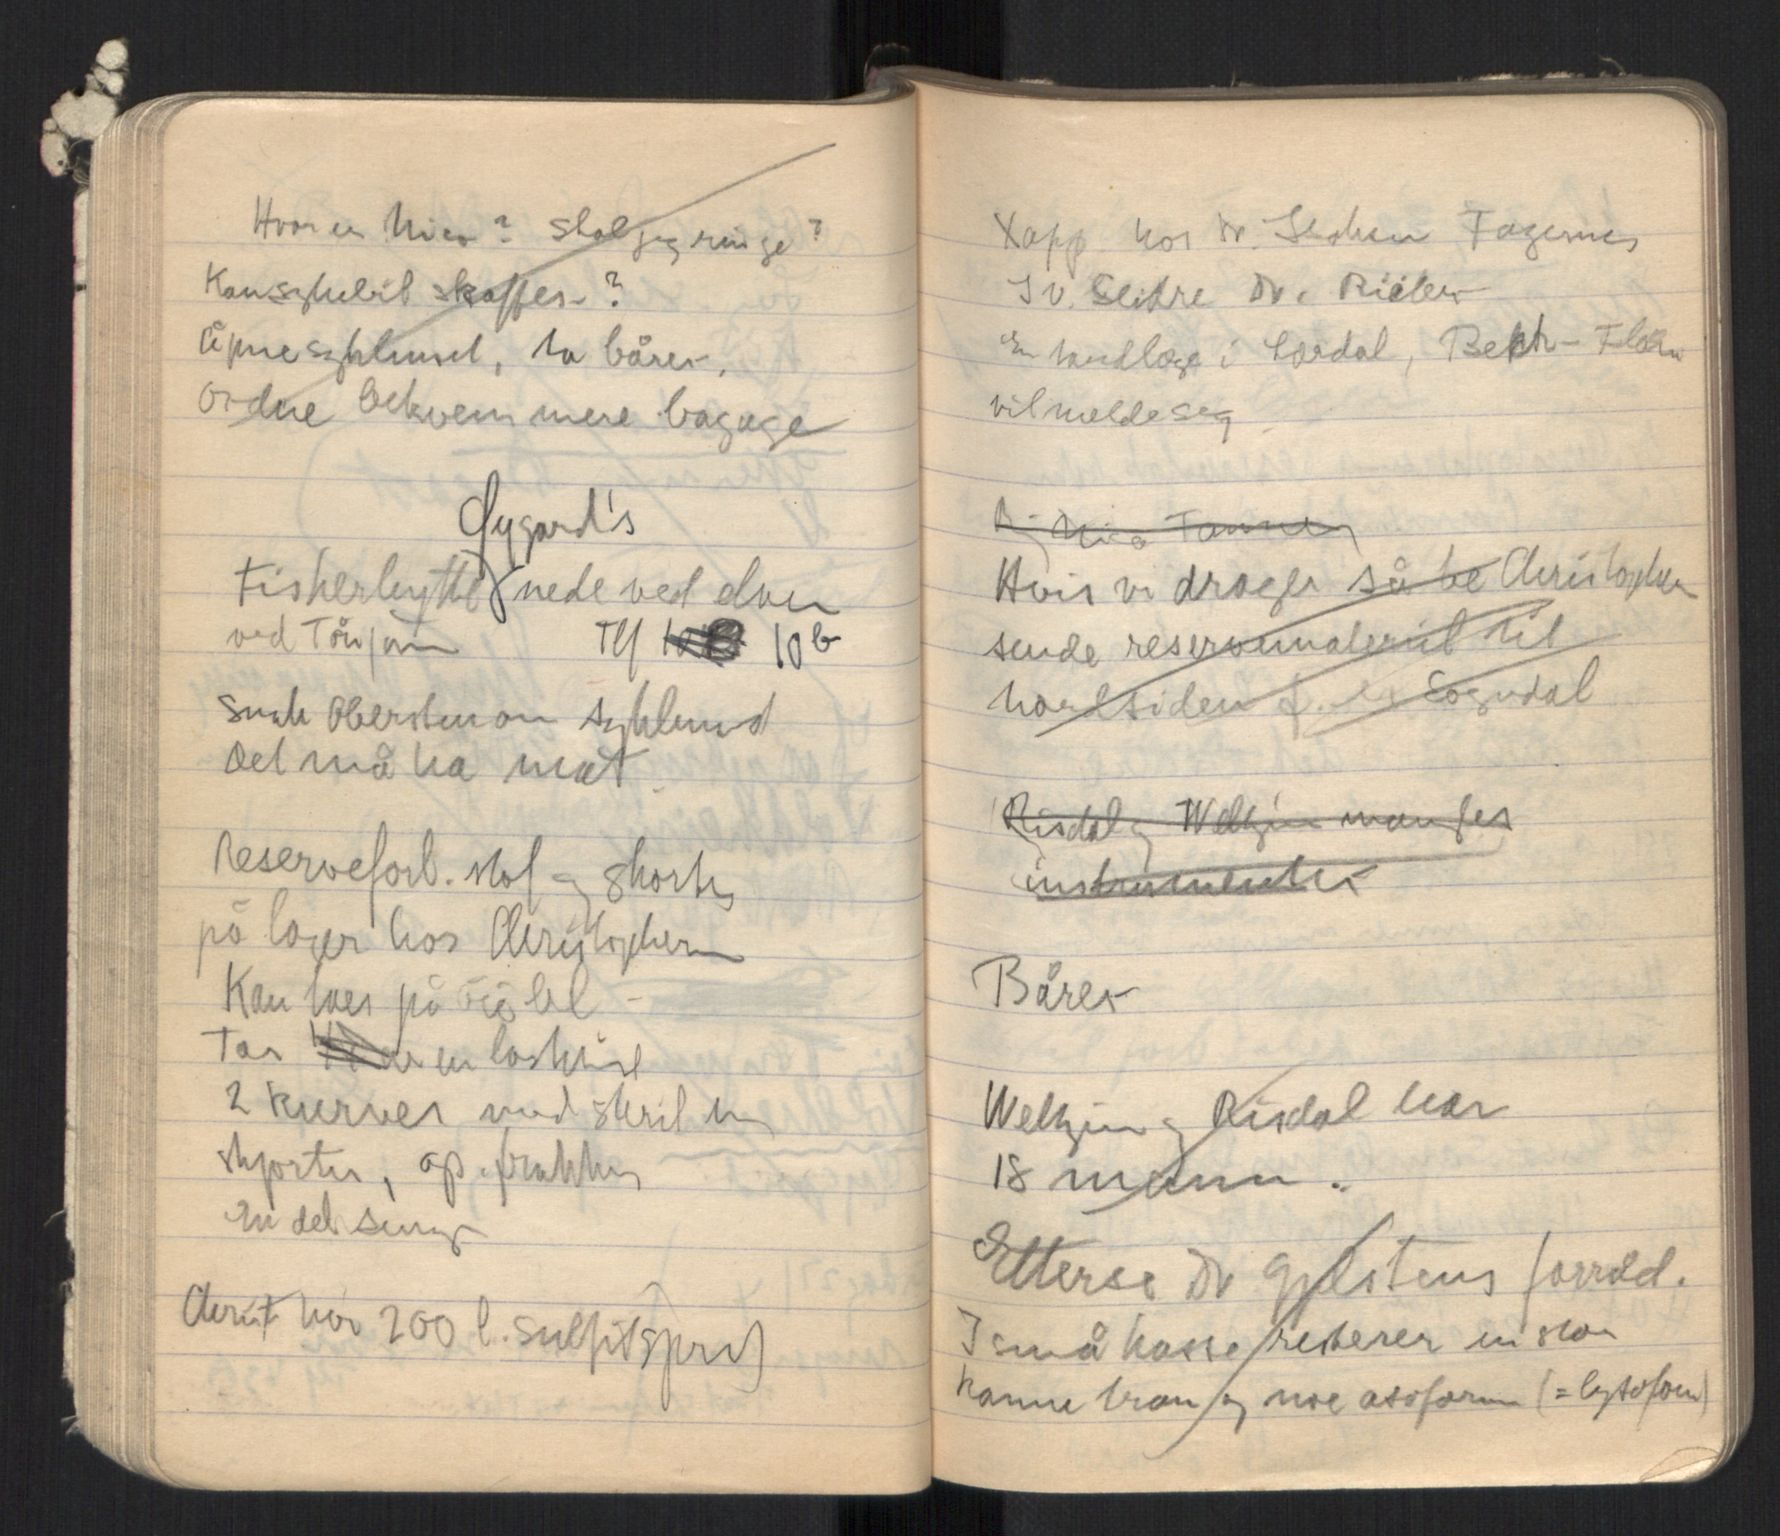 Hvor er Nico? Skal jeg ringe?
Kan sykebil skaffes?
Åpne sykehuset, ta bårer,
Ordne bekvemmere bagage
Øygard's
Fiskerhytte nede ved elven
ved Tønjum Tlf 10 b
Send Obersten om sykehuset
Det må ha mat
Reserveforb. stof og skorter
på lager hos Christophersen
Kan taes på
Tar en lastebil
2 kurver med sterile
skjorter, op. frakker
En del senge
Christ har 200 l. sulfitsprit
Xapp hos dr. Fagernes
I V. Slidre Dr.
En tandlæge i Lærdal,
vil melde seg
Ring Nico
Hvis vi drager så be Christophersen
sende reservemateriel til
nordsiden f. ex Sogndal
Risdal og Welhin mangler
instrumenter
Bårer
og Risdal har
18 mann.
Etterse Dr Gjestens forråd.
I små kasse resterer en stor
kanne tran og noe asoform (= lysoform)